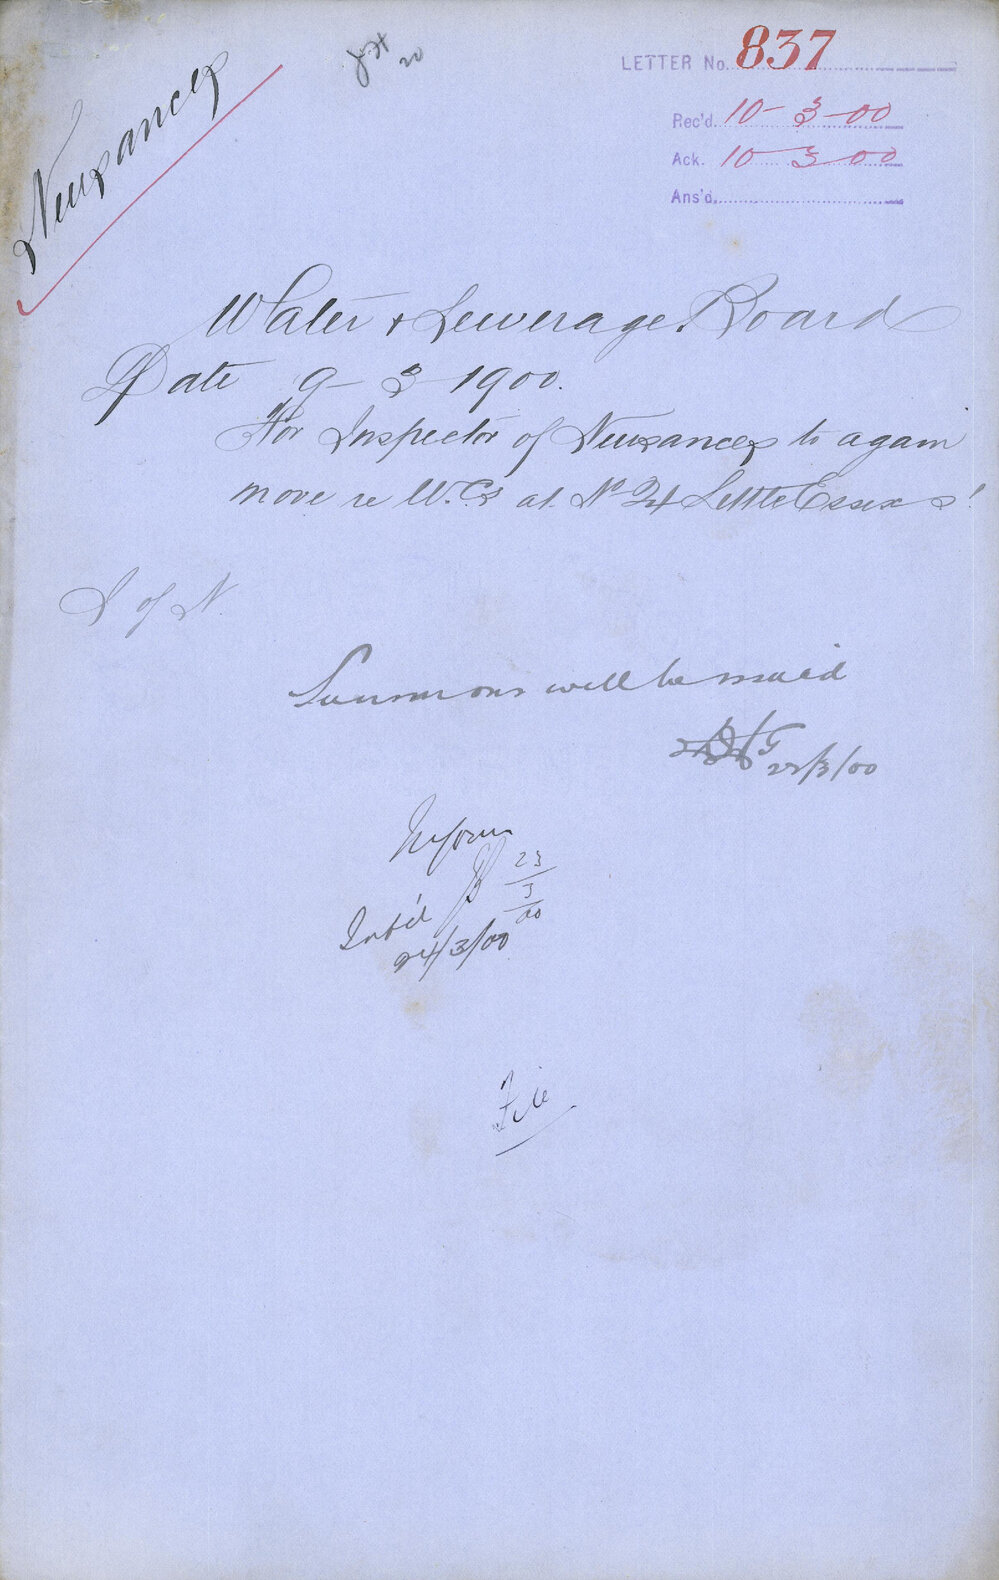 Nuisances
LETTER No. 837
Rec'd. 10-3-00
Ack. 10 3 00
Ans'd.
Water & Sewerage Board
Date 9-3-1900.
For Inspector of Nuisances to again
move re W.Cs at No 24 Little Essex St
I of N.
Summons will be issued
22/3/00
Inform
23/3/00
Inf'd
24/3/00
File